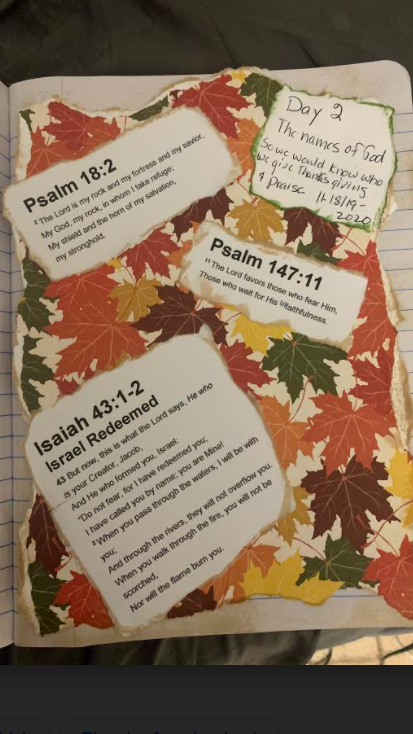 Psalm 18:2
² The Lord is my rock and my fortress and my savior,
My God, my rock, in whom I take refuge;
My shield and the horn of my salvation,
my stronghold.
Day 2
The names of God
So we would know who
we give Thanksgiving
& Praise 11-18/19-
2020
Psalm 147:11
¹¹ The Lord favors those who fear Him,
Those who wait for His [b]faithfulness.
Isaiah 43:1-2
Israel Redeemed
43 But now, this is what the Lord says, He who
is your Creator, Jacob,
And He who formed you, Israel:
"Do not fear, for I have redeemed you;
I have called you by name; you are Mine!
² When you pass through the waters, I will be with
you;
And through the rivers, they will not overflow you.
When you walk through the fire, you will not be
scorched,
Nor will the flame burn you.